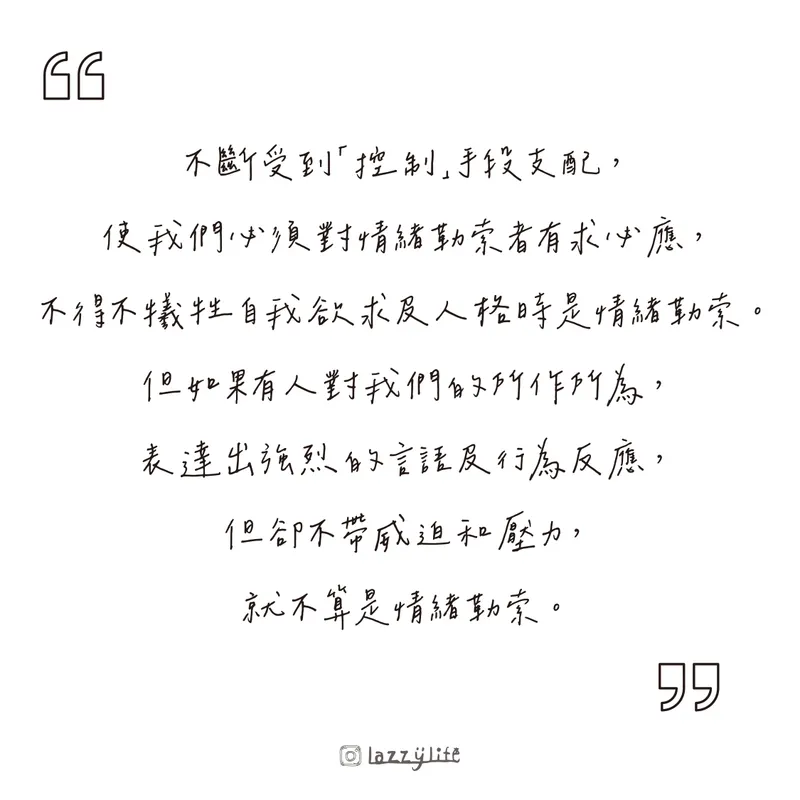 不斷受到「控制」手段支配，
使我們必須對情緒勒索者有求必應，
不得不犧牲自我欲求及人格時是情緒勒索。
但如果有人對我們的所作所為，
表達出強烈的言語及行為反應，
但卻不帶威迫和壓力，
就不算是情緒勒索。
lazzylife